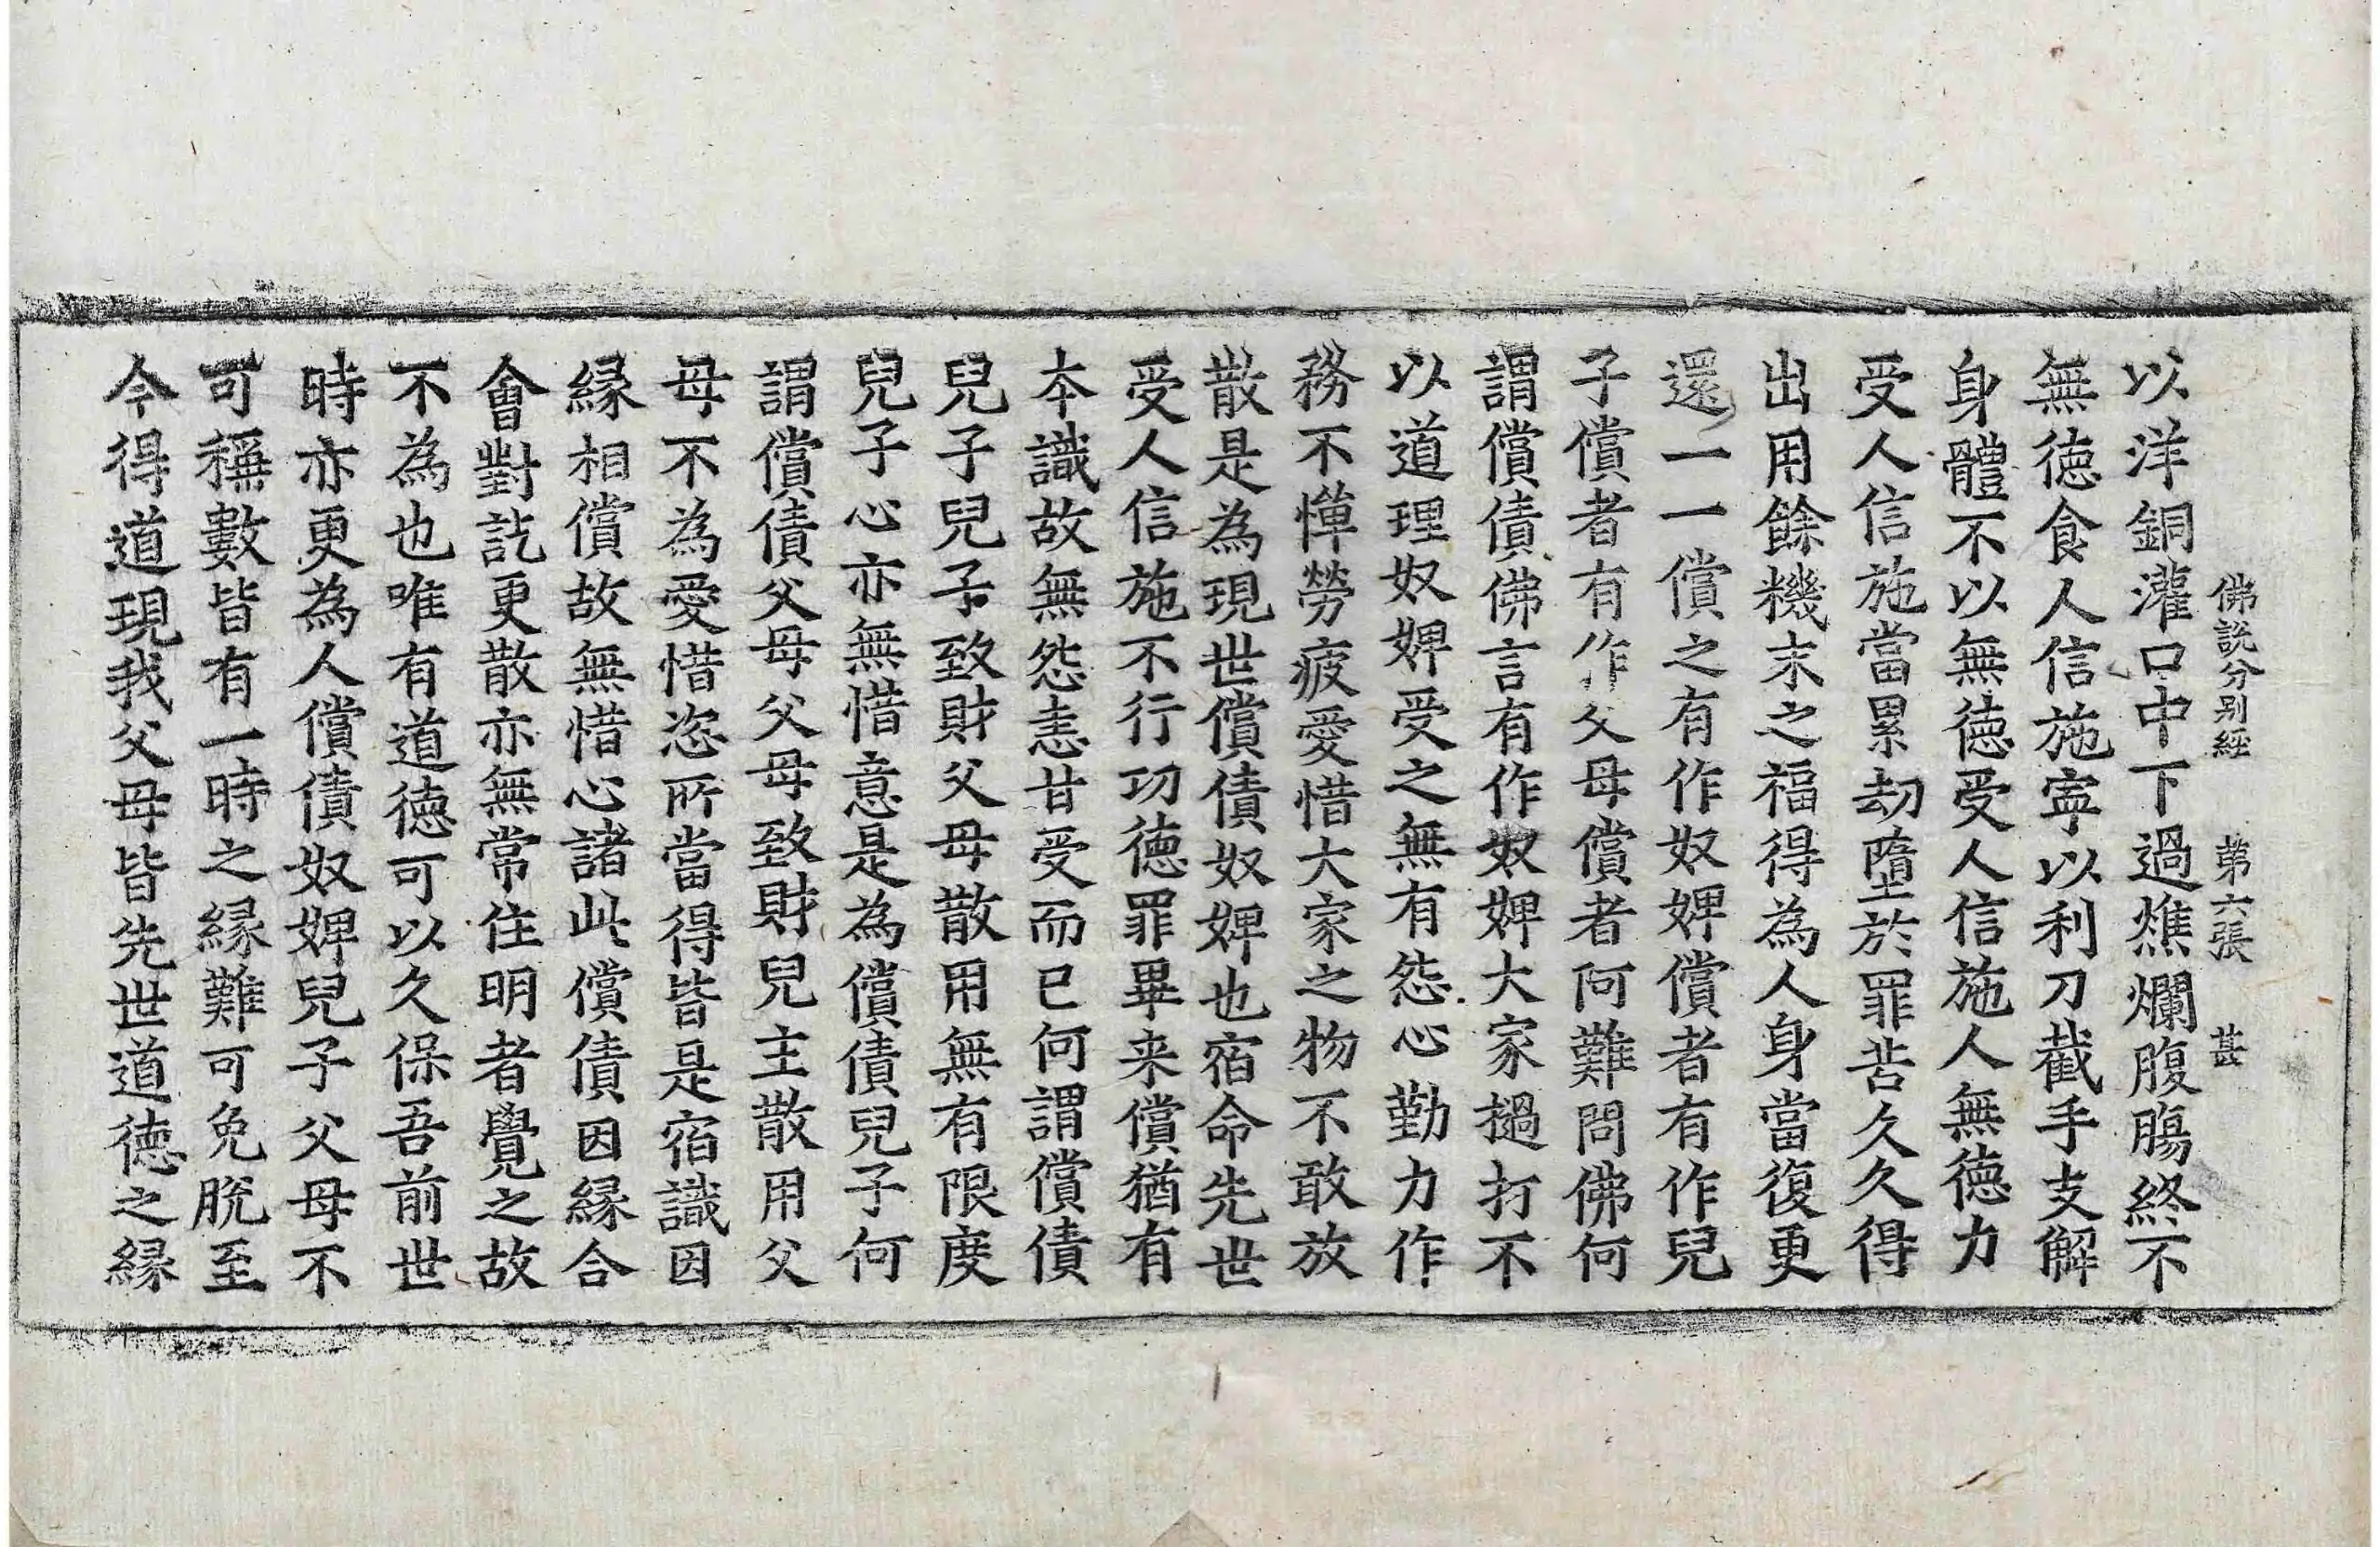 佛說分別經 第六張 甚
以洋銅灌口中下過燋爛腹膓終不
無德食人信施寧以利刀截手支解
身體不以無德受人信施人無德力
受人信施當累劫墮於罪苦久久得
出用餘機末之福得為人身當復更
還一一償之有作奴婢償者有作兒
子償者有作父母償者阿難問佛何
謂償債佛言有作奴婢大家撾打不
以道理奴婢受之無有怨心勤力作
務不憚勞疲愛惜大家之物不敢放
散是為現世償債奴婢也宿命先世
受人信施不行功德罪畢来償猶有
本識故無怨恚甘受而已何謂償債
兒子兒子致財父母散用無有限度
兒子心亦無惜意是為償債兒子何
謂償債父母父母致財兒主散用父
母不為愛惜恣所當得皆是宿識因
緣相償故無惜心諸此償債因緣合
會對訖更散亦無常住明者覺之故
不為也唯有道德可以久保吾前世
時亦更為人償債奴婢兒子父母不
可稱數皆有一時之緣難可免脫至
今得道現我父母皆先世道德之緣